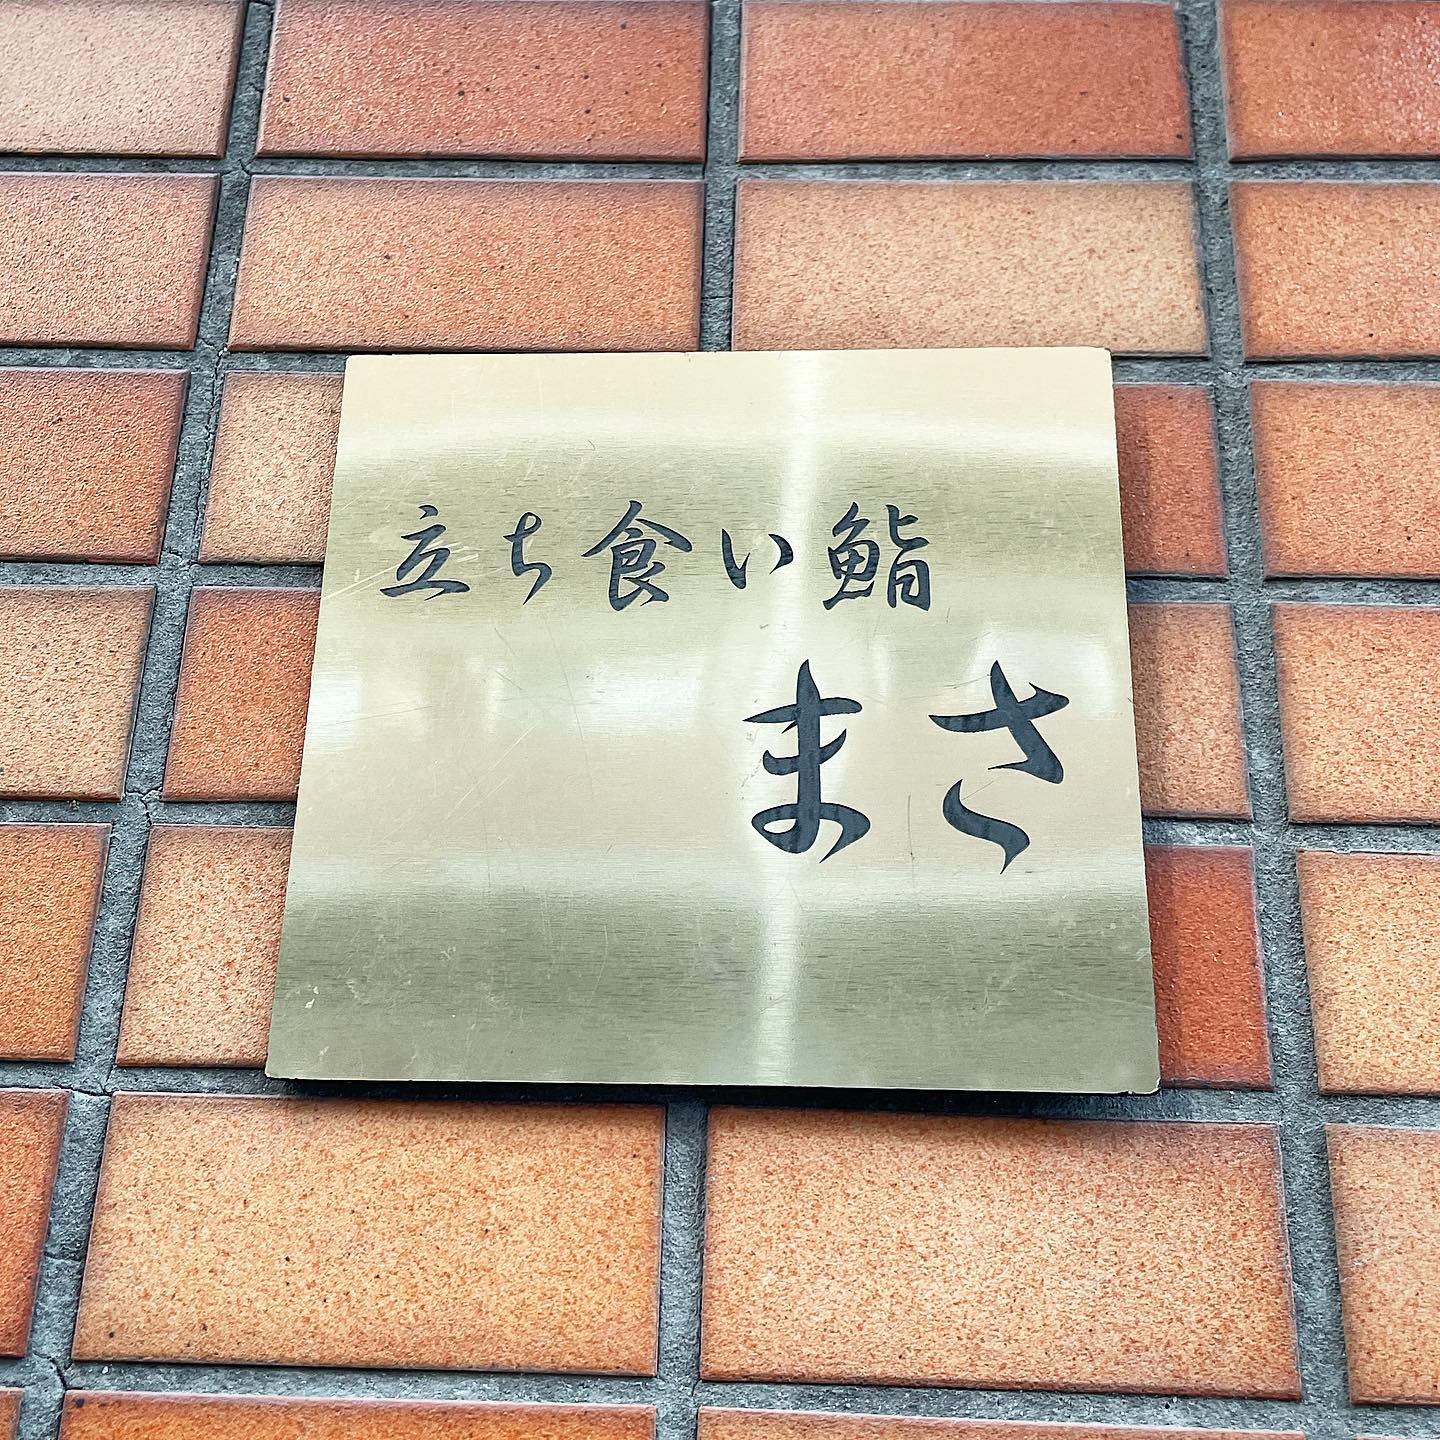 立ち食い鮨
まさ